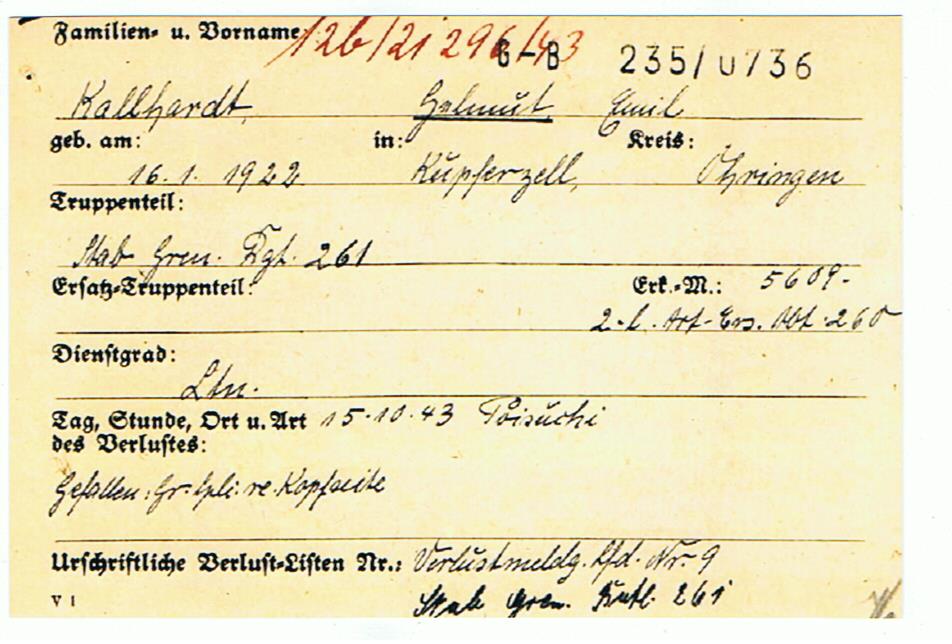 Familien- u. Vorname 12b/21 296/43
G-B 235/0736
Kallhardt, Helmut Emil
geb. am: in: Kreis:
16.1.1922 Kupferzell, Öhringen
Truppenteil:
Stab Gren. Rgt. 261
Ersatz-Truppenteil: Erk.-M.: 5609-
2.l.Art-Ers.Abt.260
Dienstgrad:
Ltn.
Tag, Stunde, Ort u. Art 15.10.43
des Verlustes:
Gefallen: Gr. Spli. re. Kopfseite
Urschriftliche Verlust-Listen Nr.: Verlustmeldg. lfd. Nr. 9
V 1 Stab Gren. 261